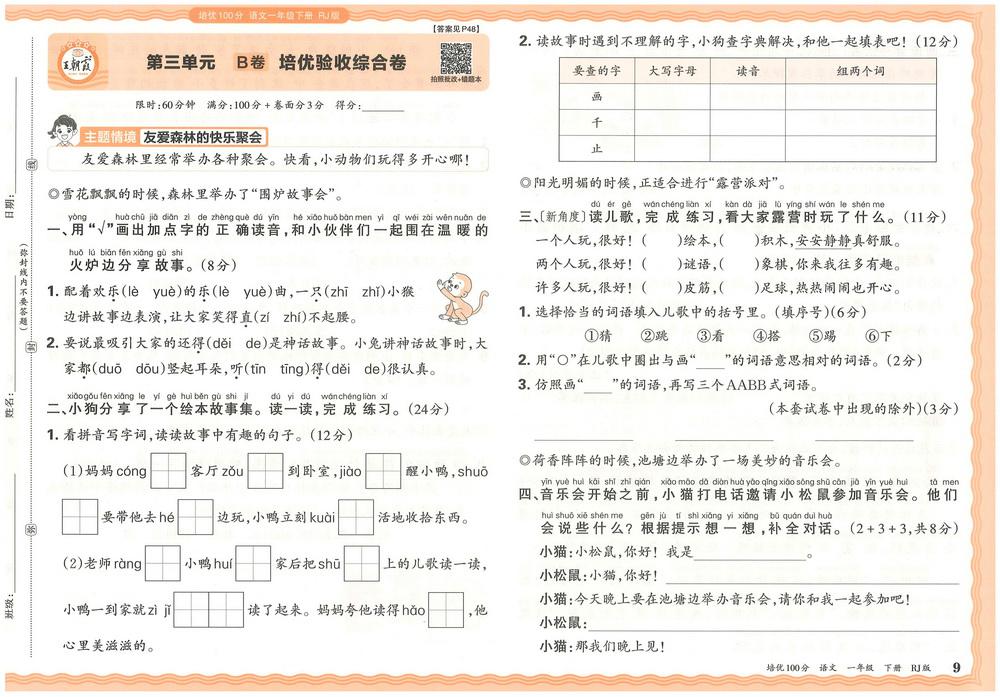 培优100分 语文一年级下册 RJ版
王朝霞
第三单元 B卷 培优验收综合卷
【答案见P48】
拍照批改+错题本
限时:60分钟 满分:100分+卷面分3分 得分:
主题情境 友爱森林的快乐聚会
友爱森林里经常举办各种聚会。快看,小动物们玩得多开心哪!
◎雪花飘飘的时候,森林里举办了“围炉故事会”。
yòng huà chū jiā diǎn zì de zhèng què dú yīn hé xiǎo huǒ bàn men yì qǐ wéi zài wēn nuǎn de
一、用“√”画出加点字的正确读音,和小伙伴们一起围在温暖的
huǒ lú biān fēn xiǎng gù shi
火炉边分享故事。(8分)
1. 配着欢乐(lè yuè)的乐(lè yuè)曲,一只(zhī zhǐ)小猴
边讲故事边表演,让大家笑得直(zí zhí)不起腰。
2. 要说最吸引大家的还得(děi de)是神话故事。小兔讲神话故事时,大
家都(duō dōu)竖起耳朵,听(tīn tīng)得(děi de)很认真。
xiǎo gǒu fēn xiǎng le yí gè huì běn gù shi jí dú yi dú wán chéng liàn xí
二、小狗分享了一个绘本故事集。读一读,完成练习。(24分)
1. 看拼音写字词,读读故事中有趣的句子。(12分)
(1)妈妈cóng 客厅zǒu 到卧室,jiào 醒小鸭,shuō
要带他去hé 边玩,小鸭立刻kuài 活地收拾东西。
(2)老师ràng 小鸭huí 家后把shū 上的儿歌读一读,
小鸭一到家就zì jǐ 读了起来。妈妈夸他读得hǎo ,他
心里美滋滋的。
2. 读故事时遇到不理解的字,小狗查字典解决,和他一起填表吧!(12分)
要查的字 大写字母 读音 组两个词
画
千
止
◎阳光明媚的时候,正适合进行“露营派对”。
dú ér gē wán chéng liàn xí kàn dà jiā lù yíng shí wán le shén me
三、〔新角度〕读儿歌,完成练习,看大家露营时玩了什么。(11分)
一个人玩,很好!( )绘本,( )积木,安安静静真舒服。
两个人玩,很好!( )谜语,( )象棋,你来我往多有趣。
许多人玩,很好!( )皮筋,( )足球,热热闹闹也开心。
1. 选择恰当的词语填入儿歌中的括号里。(填序号)(6分)
①猜 ②跳 ③看 ④搭 ⑤踢 ⑥下
2. 用“○”在儿歌中圈出与画“____”的词语意思相对的词语。(2分)
3. 仿照画“____”的词语,再写三个AABB式词语。
(本套试卷中出现的除外)(3分)
◎荷香阵阵的时候,池塘边举办了一场美妙的音乐会。
yīn yuè huì kāi shǐ zhī qián xiǎo māo dǎ diàn huà yāo qǐng xiǎo sōng shǔ cān jiā yīn yuè huì tā men
四、音乐会开始之前,小猫打电话邀请小松鼠参加音乐会。他们
huì shuō xiē shén me gēn jù tí shì xiǎng yi xiǎng bǔ quán duì huà
会说些什么?根据提示想一想,补全对话。(2+3+3,共8分)
小猫:小松鼠,你好!我是____________。
小松鼠:小猫,你好!
小猫:今天晚上要在池塘边举办音乐会,请你和我一起参加吧!
小松鼠:
小猫:那我们晚上见!
培优100分 语文 一年级 下册 RJ版 9
日期:
(弥封线内不要答题)
姓名:
班级:
线
封
弥